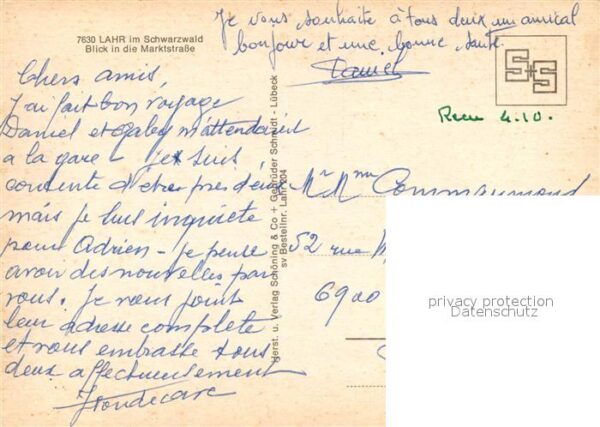 7630 LAHR im Schwarzwald
Blick in die Marktstraße
Je vous souhaite à tous deux un amical
bonjour et une bonne santé.
Daniel
S+S
Recu 4.10.
Chers amis,
J'ai fait bon voyage
Daniel et Gaby m'attendaient
a la gare - je suis
contente d'être près d'eux
mais je suis inquiète
pour Adrien - Je pense
avoir des nouvelles par
vous. Je vous joint
leur adresse complète
et vous embrasse tous
deux affectueusement
Herst. u. Verlag Schöning & Co + Gebrüder Schmidt - Lübeck
sv Bestellnr. Lahr 204
Mr Mme
52 rue
6900
privacy protection
Datenschutz